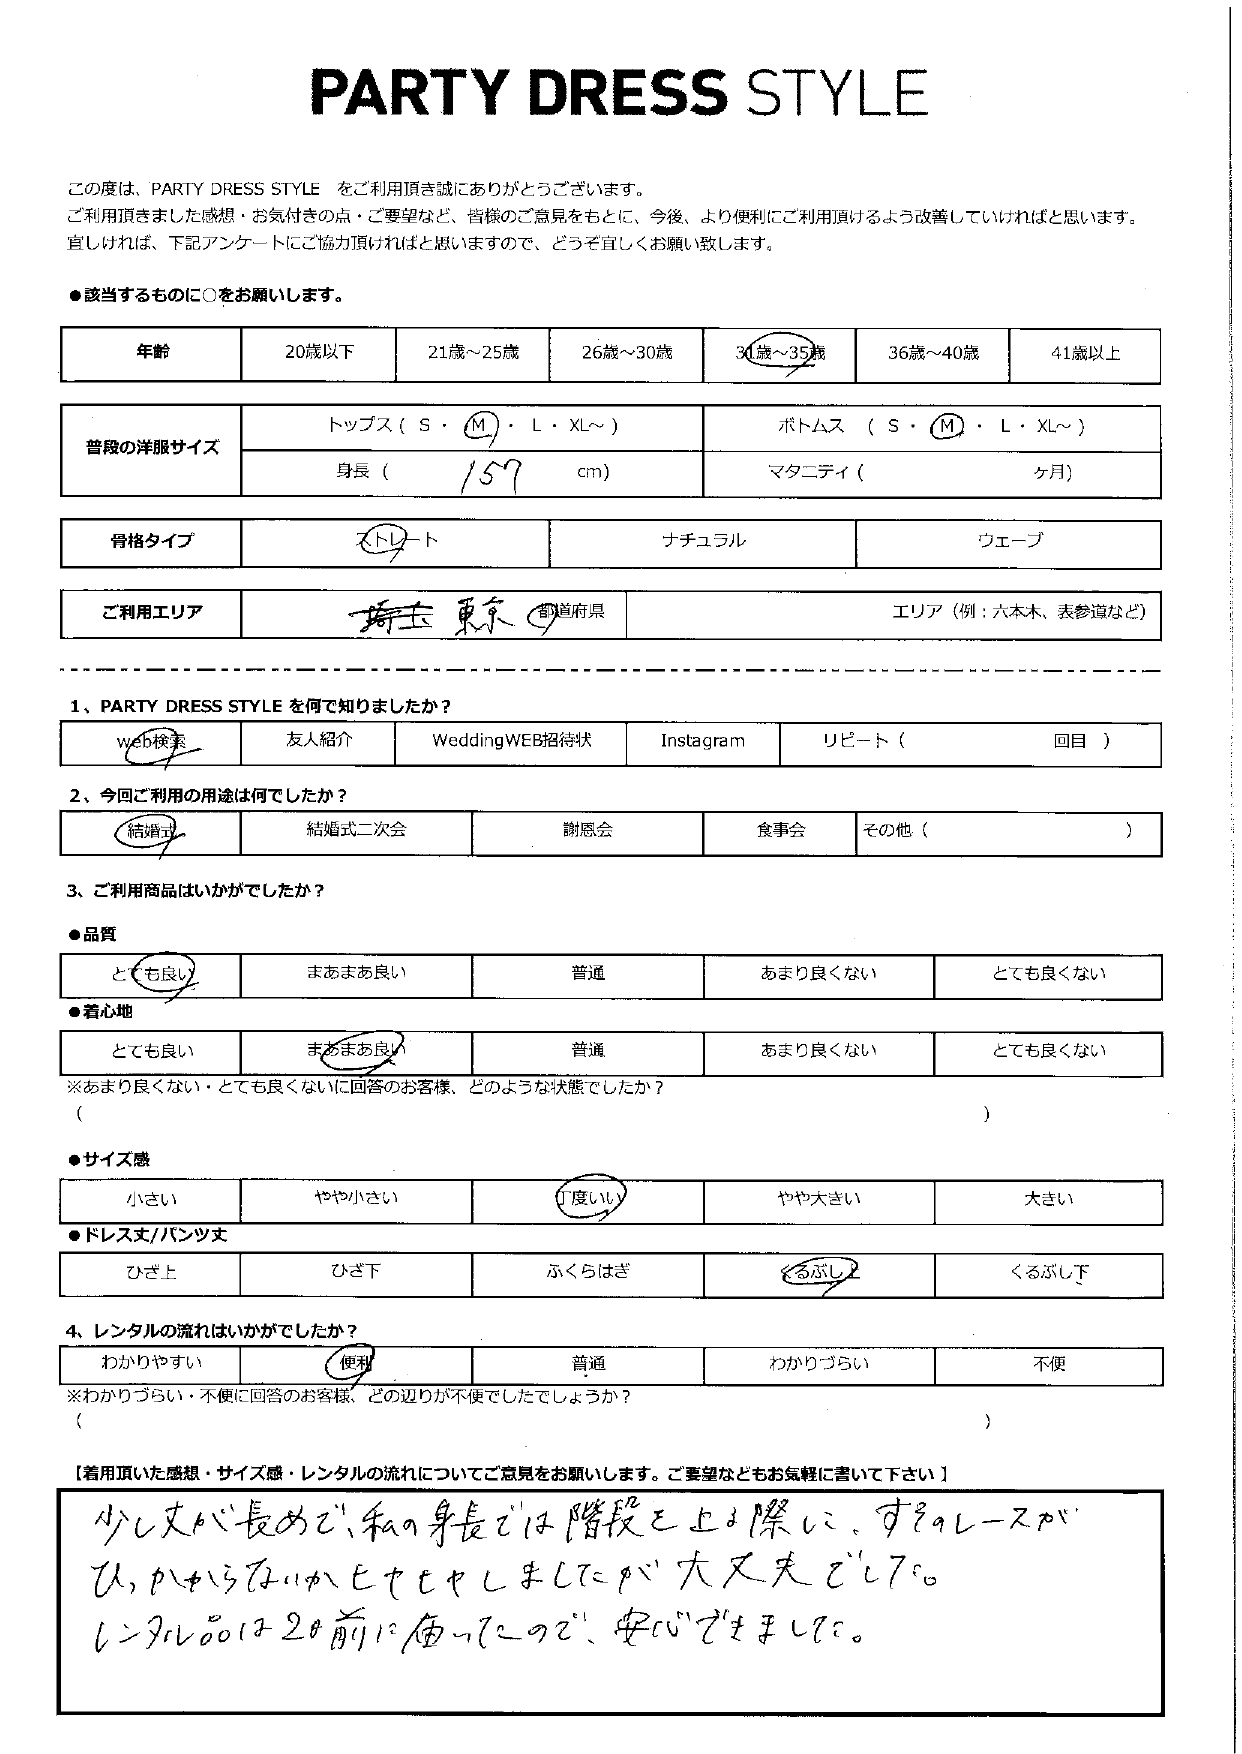 PARTY DRESS STYLE
この度は、PARTY DRESS STYLE　をご利用頂き誠にありがとうございます。
ご利用頂きました感想・お気付きの点・ご要望など、皆様のご意見をもとに、今後、より便利にご利用頂けるよう改善していければと思います。
宜しければ、下記アンケートにご協力頂ければと思いますので、どうぞ宜しくお願い致します。
●該当するものに○をお願いします。
年齢 20歳以下 21歳～25歳 26歳～30歳 31歳～35歳 36歳～40歳 41歳以上
普段の洋服サイズ トップス ( S ・ M ・ L ・ XL～ ) ボトムス ( S ・ M ・ L ・ XL～ )
身長 ( 157 cm) マタニティ ( ヶ月)
骨格タイプ ストレート ナチュラル ウェーブ
ご利用エリア 埼玉 東京 都道府県 エリア（例：六本木、表参道など）
1、PARTY DRESS STYLE を何で知りましたか？
web検索 友人紹介 WeddingWEB招待状 Instagram リピート ( 回目 )
2、今回ご利用の用途は何でしたか？
結婚式 結婚式二次会 謝恩会 食事会 その他 ( )
3、ご利用商品はいかがでしたか？
●品質
とても良い まあまあ良い 普通 あまり良くない とても良くない
●着心地
とても良い まあまあ良い 普通 あまり良くない とても良くない
※あまり良くない・とても良くないに回答のお客様、どのような状態でしたか？
( )
●サイズ感
小さい やや小さい 丁度いい やや大きい 大きい
●ドレス丈/パンツ丈
ひざ上 ひざ下 ふくらはぎ くるぶし上 くるぶし下
4、レンタルの流れはいかがでしたか？
わかりやすい 便利 普通 わかりづらい 不便
※わかりづらい・不便に回答のお客様、どの辺りが不便でしたでしょうか？
( )
【着用頂いた感想・サイズ感・レンタルの流れについてご意見をお願いします。ご要望などもお気軽に書いて下さい 】
少し丈が長めで、私の身長では階段を上る際に、すそのレースが
ひっかからないかヒヤヒヤしましたが大丈夫でした。
レンタル品は2日前に届ったので、安心できました。